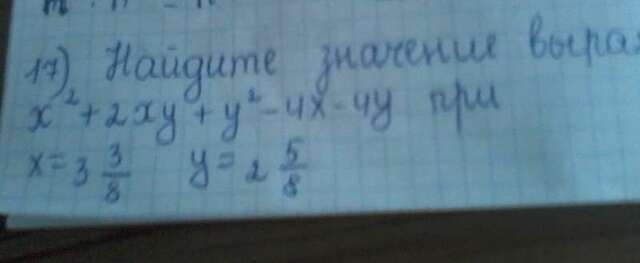 17) Найдите значение выраж
x² + 2xy + y² - 4x - 4y при
x = 3 3/8 y = 2 5/8